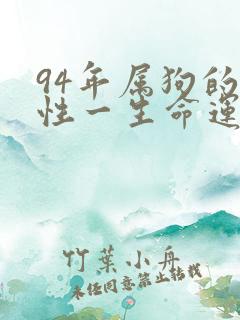 94年属狗的
性一生命运
竹葉小舟
未经同意禁止转载